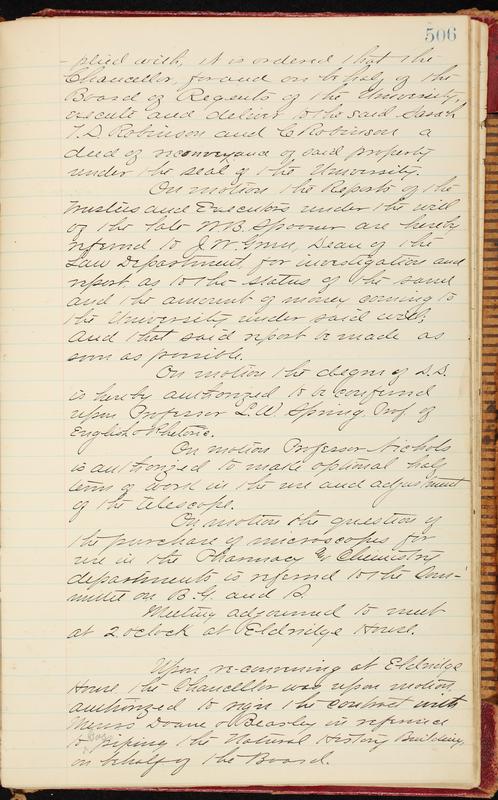 506
plied with, it is ordered that the
Chancellor, for and on behalf of the
Board of Regents of the University,
execute and deliver to the said Sarah
T. D. Robinson and C Robinson a
deed of reconveyance of said property
under the seal of the University.
On motion the Reports of the
Trustees and Executors under the will
of the late W. B. Spooner are hereby
referred to J. W. Green, Dean of the
Law Department, for investigation and
report as to the status of the same
and the amount of money coming to
the University under said will.
And that said report be made as
soon as possible.
On motion the degree of D.D.
is hereby authorized to be conferred
upon Professor L. W. Spring, Prof of
English & Rhetoric.
On motion Professor Nichols
is authorized to make optional half
term of work in the use and adjustment
of the telescope.
On motion the question of
the purchase of microscopes for
use in the Pharmacy & Chemistry
departments is referred to the Com-
mittee on B. G. and S.
Meeting adjourned to meet
at 2 oclock at Eldridge House.
Upon re-convening at Eldridge
House, the Chancellor was upon motion
authorized to sign the contract with
Messrs Doane & Beasley in reference
to piping the Natural History Building,
on behalf of the Board.